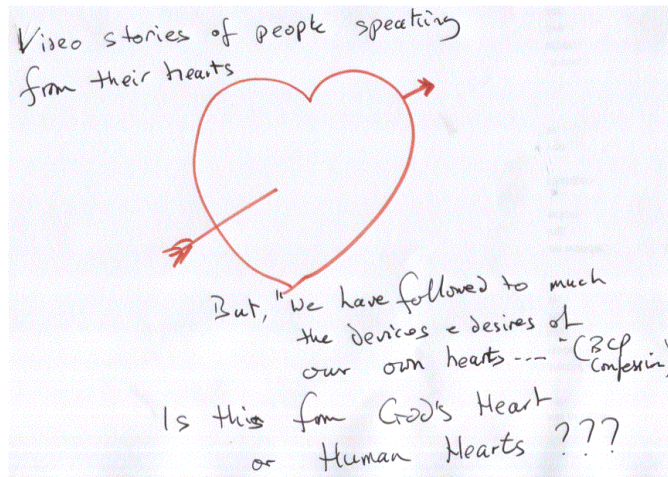 Video stories of people speaking
from their hearts
But, "We have followed to much
the devices e desires of
our own hearts ---- "(BCP
Confession)
Is this from God's Heart
or Human Hearts ???